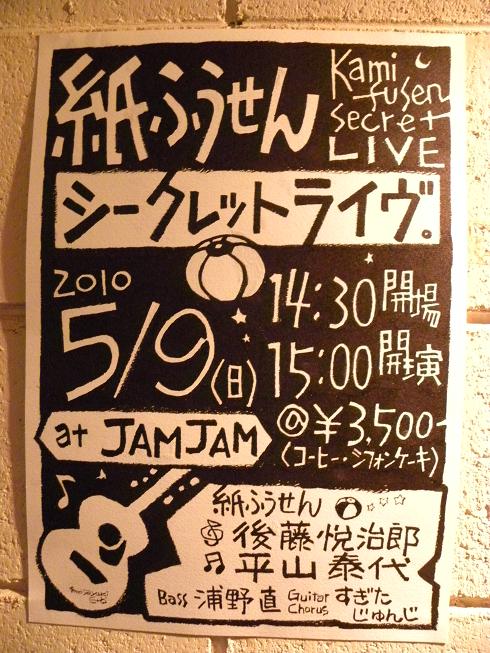 紙ふうせん
Kami
fusen
secret
LIVE
シークレットライヴ。
2010
5/9(日)
14:30開場
15:00開演
at JAMJAM
@¥3,500-
(コーヒー・シフォンケーキ)
紙ふうせん
後藤悦治郎
平山泰代
Bass 浦野直 Guitar Chorus すぎた じゅんじ